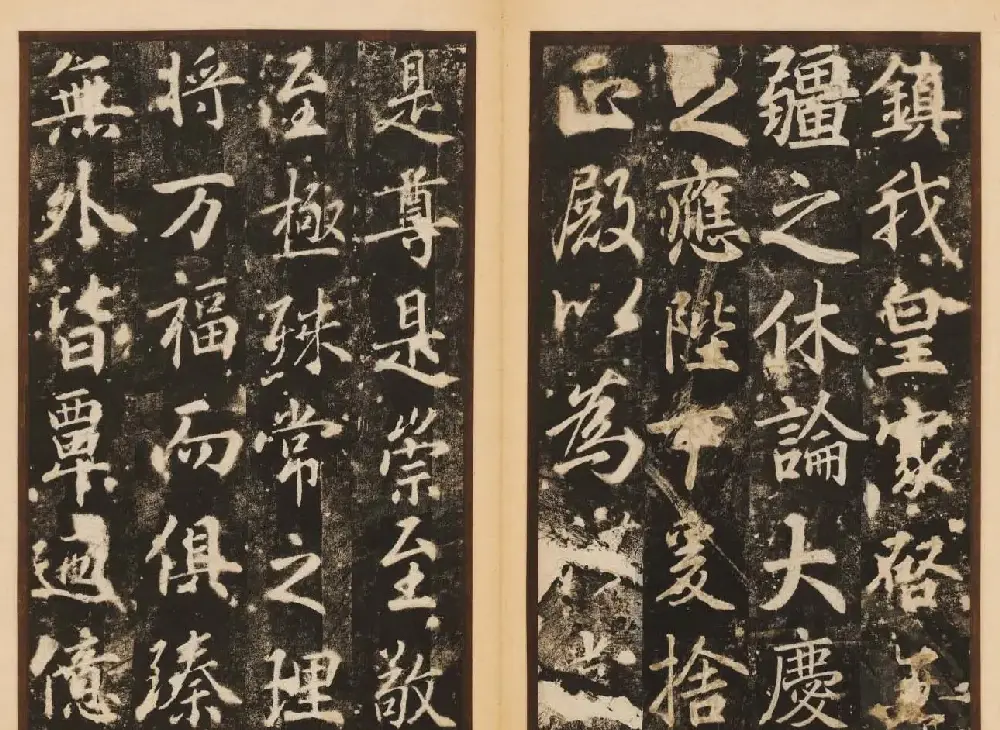 鎮我皇家啓無
疆之休論大慶
之應陛下爰捨
正殿以為
是尊是崇至敬
淫極殊常之理
将万福而俱臻
無外皆覃邇億